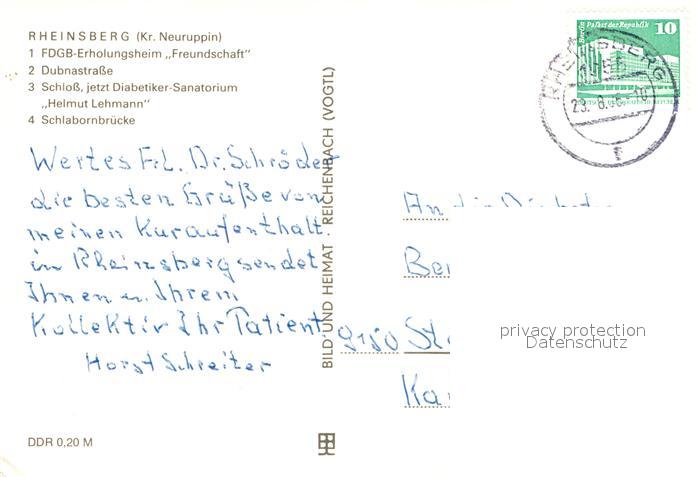 RHEINSBERG (Kr. Neuruppin)
1 FDGB-Erholungsheim „Freundschaft"
2 Dubnastraße
3 Schloß, jetzt Diabetiker-Sanatorium
„Helmut Lehmann"
4 Schlabornbrücke
Wertes Frl. Dr. Schröder
die besten Grüße von
meinen Kuraufenthalt.
in Rheinsberg sendet
Ihnen u. Ihrem
Kollektiv Ihr Patient
Horst Schreiter
DDR 0,20 M
BILD UND HEIMAT REICHENBACH (VOGTL)
Berlin Palast der Republik 10
RHEINSBERG
An die
9150
privacy protection
Datenschutz